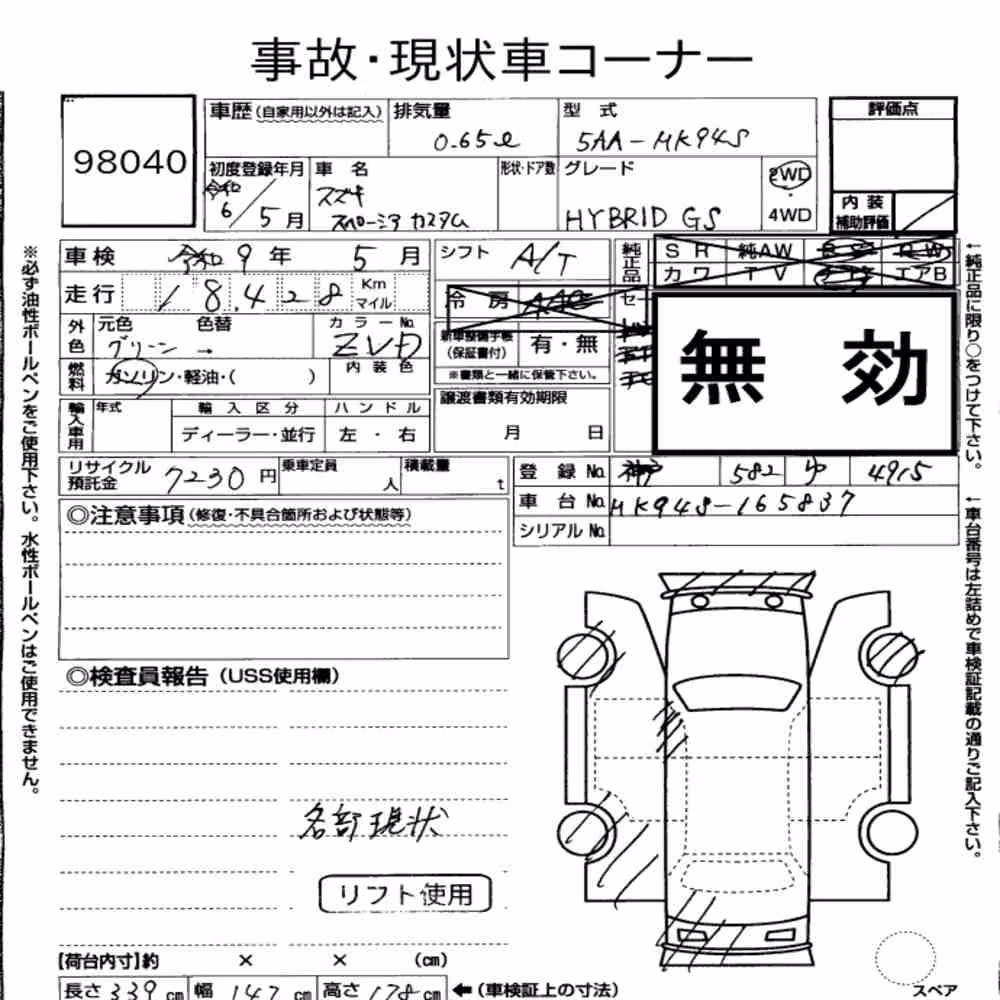 事故・現状車コーナー
98040
車歴 (自家用以外は記入) 排気量 型式 評価点
0.65ℓ 5AA-MK94S
初度登録年月 車名 形状・ドア数 グレード 2WD
令和 6/5月 スズキ スペーシア カスタム HYBRID GS ・ 4WD
内装 補助評価
車検 令和 9年 5月 シフト A/T 純正品 SR 純AW
カワ TV エアB
走行 18.428 Km マイル 冷房 AAC
外色 元色 色替 カラーNo. 新車整備手帳 (保証書付) 有・無
グリーン → ZVD
※書類と一緒に保管下さい。
燃料 ガソリン・軽油・( ) 内装色
無効
輸入車用 年式 輸入区分 ハンドル 譲渡書類有効期限
ディーラー・並行 左・右 月 日
リサイクル預託金 7230円 乗車定員 人 積載量 t
登録No. 神戸 582 ゆ 4915
車台No. MK94S-165837
シリアルNo.
◎注意事項 (修復・不具合箇所および状態等)
◎検査員報告 (USS使用欄)
各部現状
リフト使用
【荷台内寸】約 × × (cm)
長さ 339 cm 幅 147 cm 高さ 178 cm ←(車検証上の寸法)
スペア
※必ず油性ボールペンをご使用下さい。水性ボールペンはご使用できません。
←純正品に限り○をつけて下さい。
←車台番号は左詰めで車検証記載の通りご記入下さい。